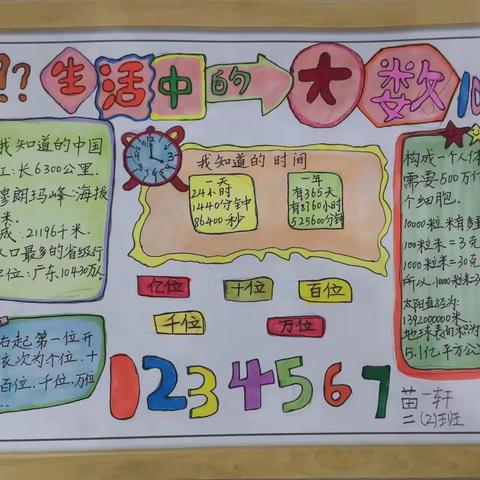 ?? 生活中的大数 10
我知道的中国
江:长6300公里.
穆朗玛峰:海拔
米.
成:21196千米.
人口最多的省级行
位:广东10430万人
我知道的时间
一天
24小时
1440分钟
86400秒
一年
有365天
有8760小时
525600分钟
构成一个人体
需要500万
个细胞.
10000粒米有多重
100粒米=3克
1000粒米=30克
所以,10000粒米=3
太阳直径为:
1392000000米.
地球表面积为
5.1亿平方公
亿位
十位
百位
千位
万位
右起第一位开
依次为个位、十
百位、千位、万位
01234567
苗一轩
二(2)班